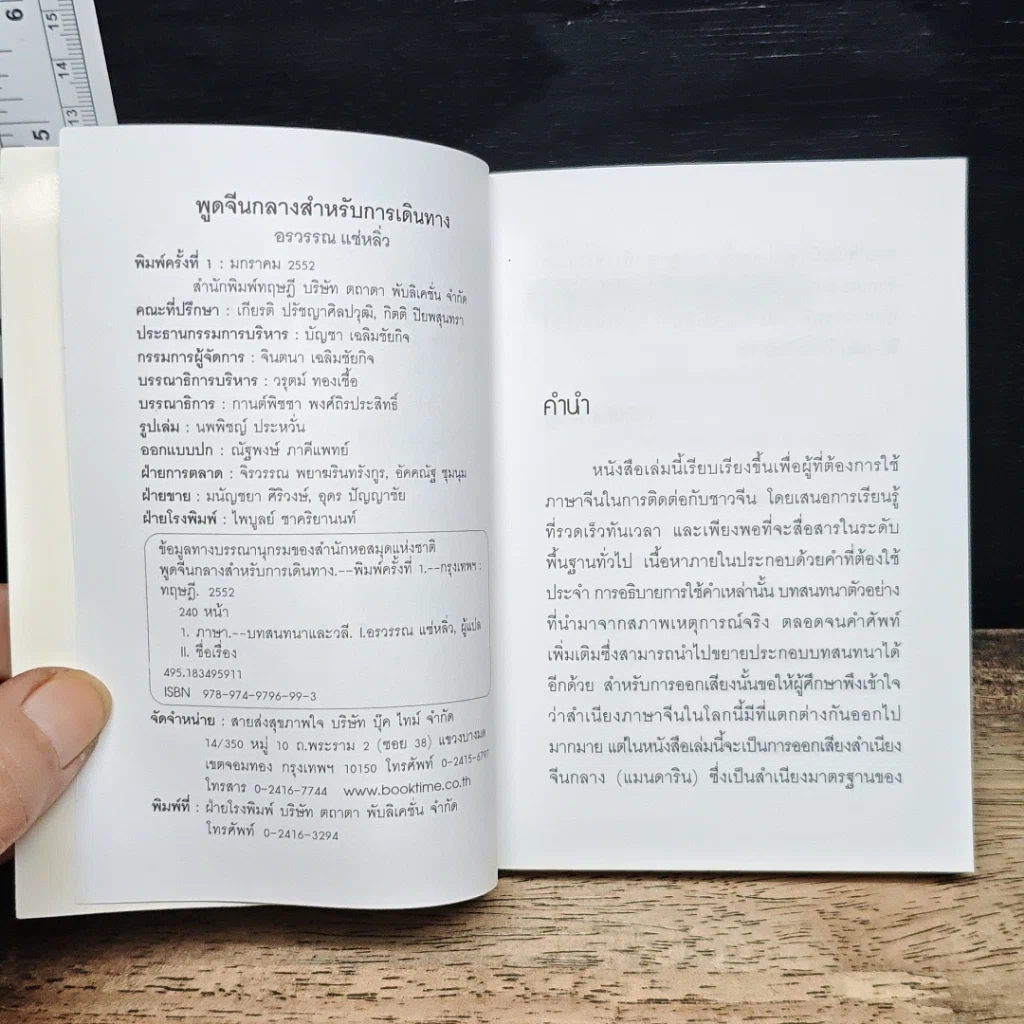 6
15
14
13
5
พูดจีนกลางสำหรับการเดินทาง
อรวรรณ แซ่หลิ่ว
พิมพ์ครั้งที่ 1 : มกราคม 2552
สำนักพิมพ์ทฤษฎี บริษัท ตถาตา พับลิเคชั่น จำกัด
คณะที่ปรึกษา : เกียรติ ปรัชญาศิลปวุฒิ, กิตติ ปิยพสุนทรา
ประธานกรรมการบริหาร : บัญชา เฉลิมชัยกิจ
กรรมการผู้จัดการ : จินตนา เฉลิมชัยกิจ
บรรณาธิการบริหาร : วรุตม์ ทองเชื้อ
บรรณาธิการ : กานต์พิชชา พงศ์ถิรประสิทธิ์
รูปเล่ม : นพพิชญ์ ประหวั่น
ออกแบบปก : ณัฐพงษ์ ภาคีแพทย์
ฝ่ายการตลาด : จิรวรรณ พยาฆรินทรังกูร, อัคคณัฐ ชุมนุม
ฝ่ายขาย : มนัญชยา ศิริวงษ์, อุดร ปัญญาชัย
ฝ่ายโรงพิมพ์ : ไพบูลย์ ชาคริยานนท์
ข้อมูลทางบรรณานุกรมของสำนักหอสมุดแห่งชาติ
พูดจีนกลางสำหรับการเดินทาง.--พิมพ์ครั้งที่ 1.--กรุงเทพฯ :
ทฤษฎี. 2552
240 หน้า
1. ภาษา.--บทสนทนาและวลี. I.อรวรรณ แซ่หลิ่ว, ผู้แปล
II. ชื่อเรื่อง
495.183495911
ISBN 978-974-9796-99-3
จัดจำหน่าย : สายส่งสุขภาพใจ บริษัท บุ๊ค ไทม์ จำกัด
14/350 หมู่ 10 ถ.พระราม 2 (ซอย 38) แขวงบางมด
เขตจอมทอง กรุงเทพฯ 10150 โทรศัพท์ 0-2415-6797
โทรสาร 0-2416-7744 www.booktime.co.th
พิมพ์ที่ : ฝ่ายโรงพิมพ์ บริษัท ตถาตา พับลิเคชั่น จำกัด
โทรศัพท์ 0-2416-3294
คำนำ
หนังสือเล่มนี้เรียบเรียงขึ้นเพื่อผู้ที่ต้องการใช้
ภาษาจีนในการติดต่อกับชาวจีน โดยเสนอการเรียนรู้
ที่รวดเร็วทันเวลา และเพียงพอที่จะสื่อสารในระดับ
พื้นฐานทั่วไป เนื้อหาภายในประกอบด้วยคำที่ต้องใช้
ประจำ การอธิบายการใช้คำเหล่านั้น บทสนทนาตัวอย่าง
ที่นำมาจากสภาพเหตุการณ์จริง ตลอดจนคำศัพท์
เพิ่มเติมซึ่งสามารถนำไปขยายประกอบบทสนทนาได้
อีกด้วย สำหรับการออกเสียงนั้นขอให้ผู้ศึกษาพึงเข้าใจ
ว่าสำเนียงภาษาจีนในโลกนี้มีที่แตกต่างกันออกไป
มากมาย แต่ในหนังสือเล่มนี้จะเป็นการออกเสียงสำเนียง
จีนกลาง (แมนดาริน) ซึ่งเป็นสำเนียงมาตรฐานของ